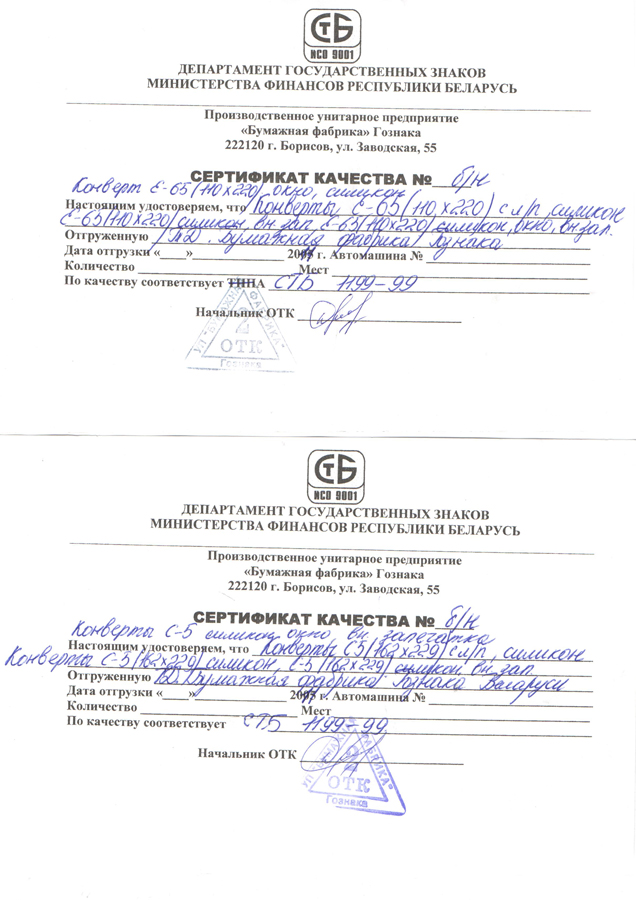 СТБ
ИСО 9001
ДЕПАРТАМЕНТ ГОСУДАРСТВЕННЫХ ЗНАКОВ
МИНИСТЕРСТВА ФИНАНСОВ РЕСПУБЛИКИ БЕЛАРУСЬ
Производственное унитарное предприятие
«Бумажная фабрика» Гознака
222120 г. Борисов, ул. Заводская, 55
СЕРТИФИКАТ КАЧЕСТВА № б/н
Конверт Е-65 /110х220/ окно, силикон
Настоящим удостоверяем, что конверты Е-65 /110х220/ с л/р, силикон
Е-65 /110х220/ силикон, вн зап. Е-65 /110х220/ силикон, окно, вн зап.
Отгруженную ТД. Бумажная фабрика Гознака
Дата отгрузки «___» ______________ 200 г. Автомашина №
Количество ________________________ Мест
По качеству соответствует ТННА СТБ 1199-99
Начальник ОТК
УП "БУМАЖНАЯ ФАБРИКА"
2
ОТК
Гознака
СТБ
ИСО 9001
ДЕПАРТАМЕНТ ГОСУДАРСТВЕННЫХ ЗНАКОВ
МИНИСТЕРСТВА ФИНАНСОВ РЕСПУБЛИКИ БЕЛАРУСЬ
Производственное унитарное предприятие
«Бумажная фабрика» Гознака
222120 г. Борисов, ул. Заводская, 55
СЕРТИФИКАТ КАЧЕСТВА № б/н
Конверты С-5 силикон, окно, вн. запечатка
Настоящим удостоверяем, что конверты С5 /162х229/ с л/р, силикон
Конверты С-5 /162х229/ силикон, С-5 /162х229/ силикон, вн. зап.
Отгруженную ТД. Бумажная фабрика Гознака Беларуси
Дата отгрузки «___» ______________ 200 г. Автомашина №
Количество ________________________ Мест
По качеству соответствует СТБ 1199-99
Начальник ОТК
УП "БУМАЖНАЯ ФАБРИКА"
ОТК
Гознака